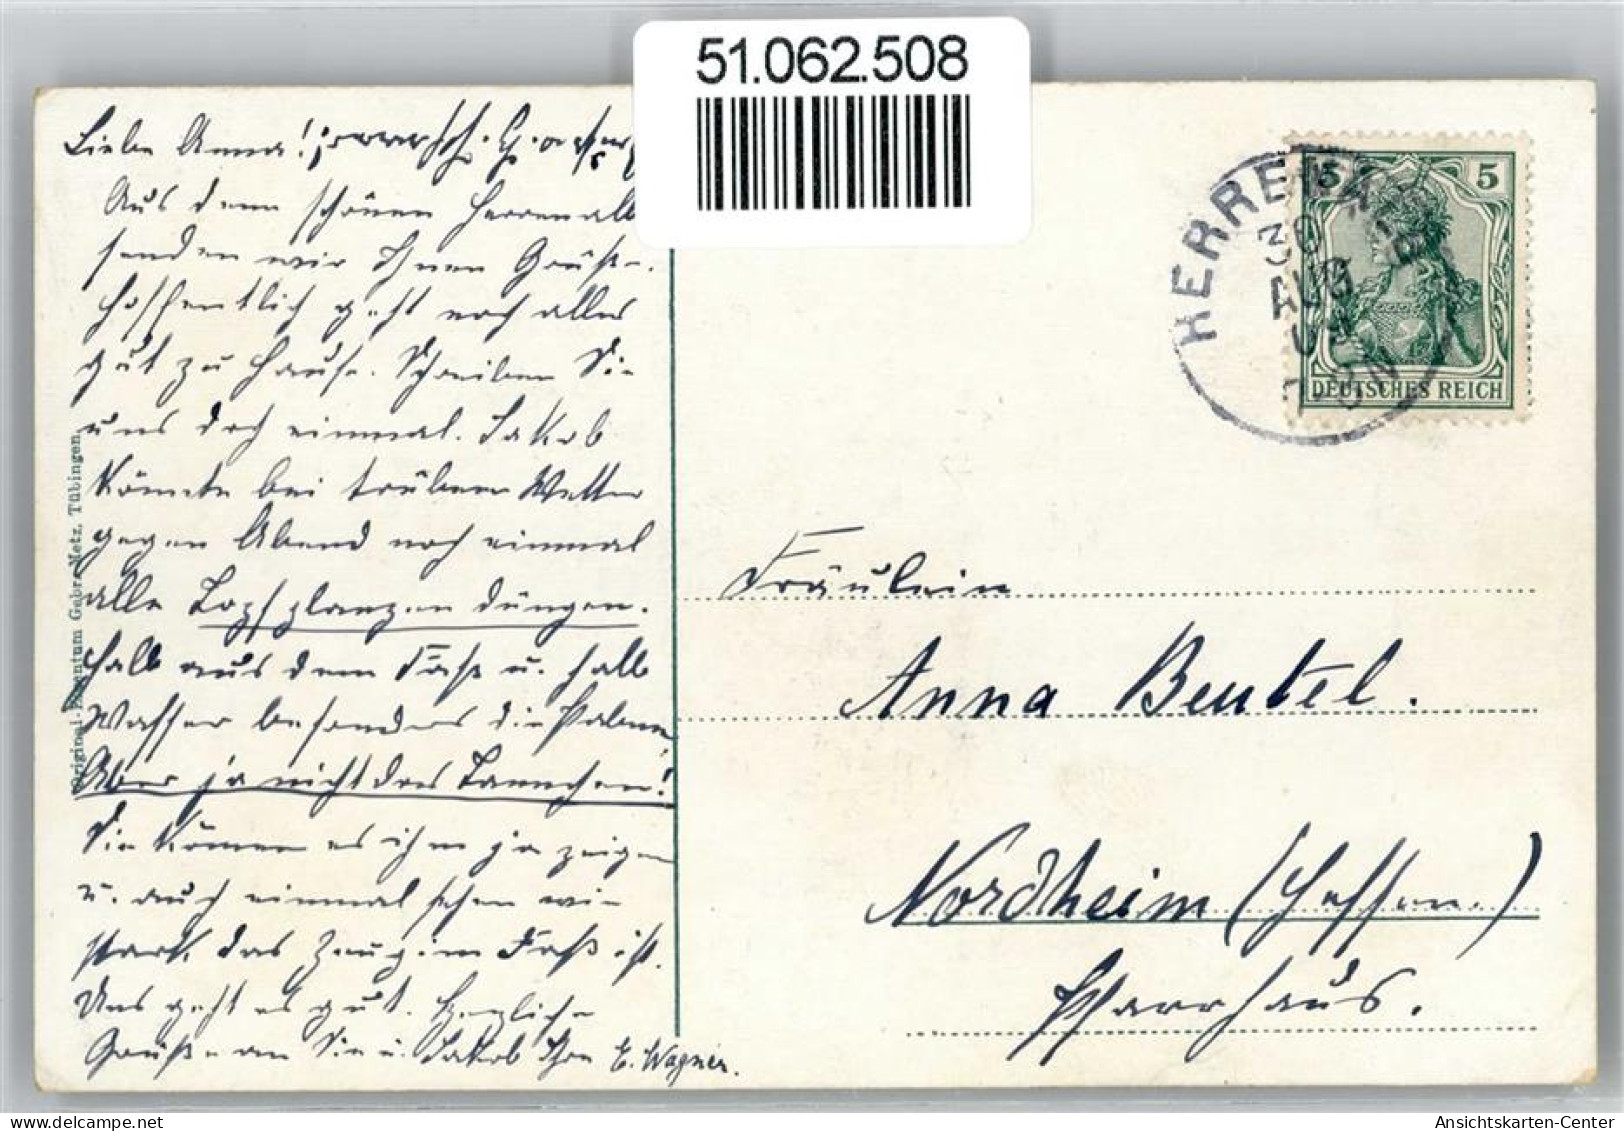 51.062.508
Liebe Anna!
Aus dem schönen Herrenalb
senden wir Ihnen Grüße.
Hoffentlich geht noch alles
gut zu Hause. Schreiben Sie
uns doch einmal. Jakob
könnte bei trübem Wetter
gegen Abend noch einmal
alle Topfplanzen düngen.
halb aus dem Faß u. halb
Wasser besonders die Palme,
Aber ja nicht das Tannchen!
Sie können es ihm ja zeigen
u. auch einmal sehen wie
stark das Zeug im Faß ist.
Uns geht es gut. Herzliche
Grüße an Sie u. Jakob Ihre E. Wagner.
Original-Gebr. Metz, Tübingen.
HERRENALB
30
AUG
DEUTSCHES REICH
5 5
Fräulein
Anna Beutel.
Nordheim (Hessen.)
Pfarrhaus.
Ansichtskarten-Center